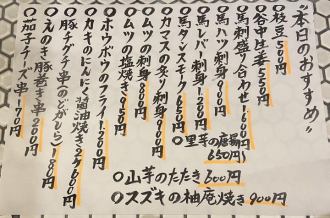 "本日のおすすめ"
○枝豆 500円
○谷中生姜 550円
○馬刺盛り合わせ 1600円
○馬ハツ刺身 900円
○馬レバー刺身 1200円
○馬タンスモーク 650円
○里芋の唐揚 650円
○カマスの炙り刺身 900円
○ムツの刺身 800円
○ムツの塩焼き 950円
○ホウボウのフライ 1200円
○カキのにんにく醤油焼き 2ケ 600円
○豚チグチ串(のどがしら) 180円
○えのき豚巻き串 200円
○茄子チーズ串 170円
○山芋のたたき 600円
○スズキの柚庵焼き 900円